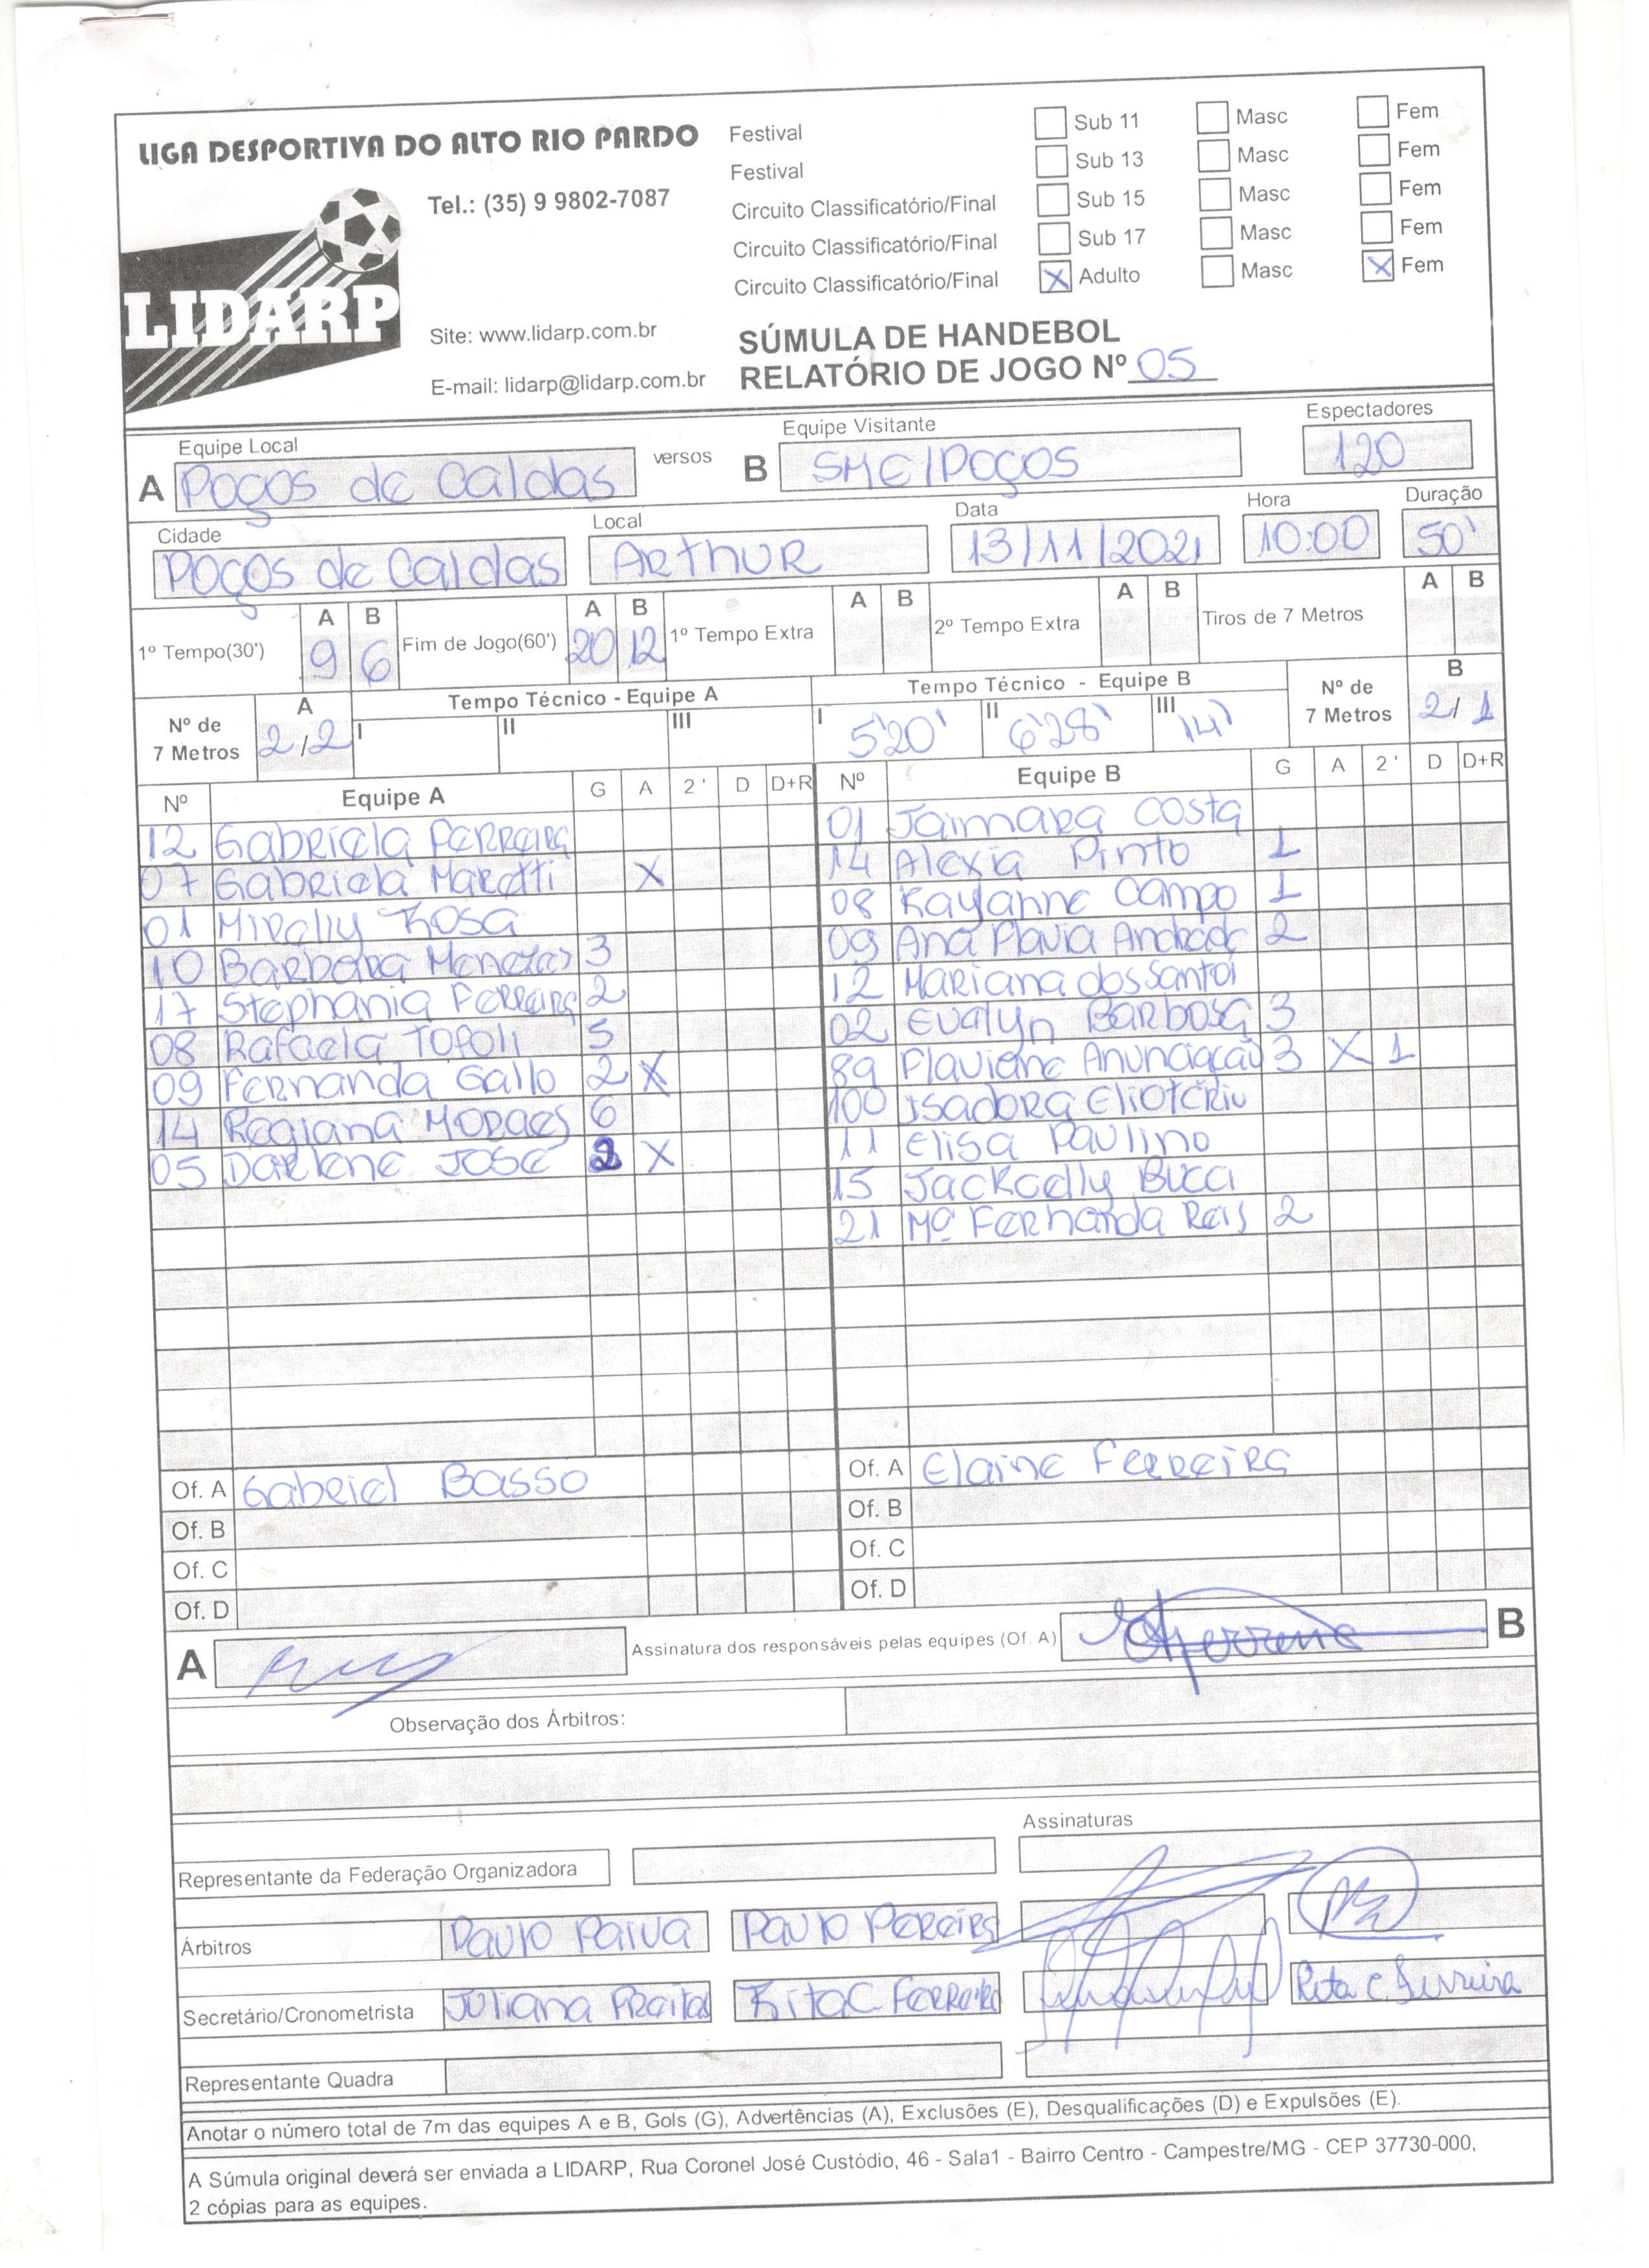 LIGA DESPORTIVA DO ALTO RIO PARDO
Tel.: (35) 9 9802-7087
LIDARP
Site: www.lidarp.com.br
E-mail: lidarp@lidarp.com.br
Festival Sub 11 Masc Fem
Festival Sub 13 Masc Fem
Circuito Classificatório/Final Sub 15 Masc Fem
Circuito Classificatório/Final Sub 17 Masc Fem
Circuito Classificatório/Final X Adulto Masc X Fem
SÚMULA DE HANDEBOL
RELATÓRIO DE JOGO Nº 05
Equipe Local Equipe Visitante Espectadores
A Poços de Caldas versos B SME/Poços 120
Cidade Local Data Hora Duração
Poços de Caldas Arthur 13/11/2021 10:00 50'
A B A B A B A B A B
1º Tempo(30') 9 6 Fim de Jogo(60') 20 12 1º Tempo Extra 2º Tempo Extra Tiros de 7 Metros
Nº de 7 Metros A 2/2 Tempo Técnico - Equipe A I II III Tempo Técnico - Equipe B I 5'20' II 6'28' III 14' Nº de 7 Metros B 2/1
Nº Equipe A G A 2' D D+R Nº Equipe B G A 2' D D+R
12 Gabriela Ferreira 01 Jaimara Costa
07 Gabriela Maretti X 14 Alexia Pinto 1
01 Mirelly Rosa 08 Rayanne Campo 1
10 Barbara Menezes 3 09 Ana Flavia Andrade 2
17 Stephania Ferreira 2 12 Mariana dos Santos
08 Rafaela Tofoli 5 02 Evalyn Barbosa 3
09 Fernanda Gallo 2 X 89 Flaviane Anunciação 3 X 1
14 Regiana Moraes 6 100 Isadora Eliotério
05 Darlene José 2 X 11 Elisa Paulino
15 Jackcelly Bucci
21 Mª Fernanda Reis 2
Of. A Gabriel Basso Of. A Elaine Ferreira
Of. B Of. B
Of. C Of. C
Of. D Of. D
A Assinatura dos responsáveis pelas equipes (Of. A) B
Observação dos Árbitros:
Assinaturas
Representante da Federação Organizadora
Árbitros Paulo Paiva Paulo Pereira
Secretário/Cronometrista Juliana Freitas Rita C Ferreira Rita C. Ferreira
Representante Quadra
Anotar o número total de 7m das equipes A e B, Gols (G), Advertências (A), Exclusões (E), Desqualificações (D) e Expulsões (E).
A Súmula original deverá ser enviada a LIDARP, Rua Coronel José Custódio, 46 - Sala1 - Bairro Centro - Campestre/MG - CEP 37730-000,
2 cópias para as equipes.